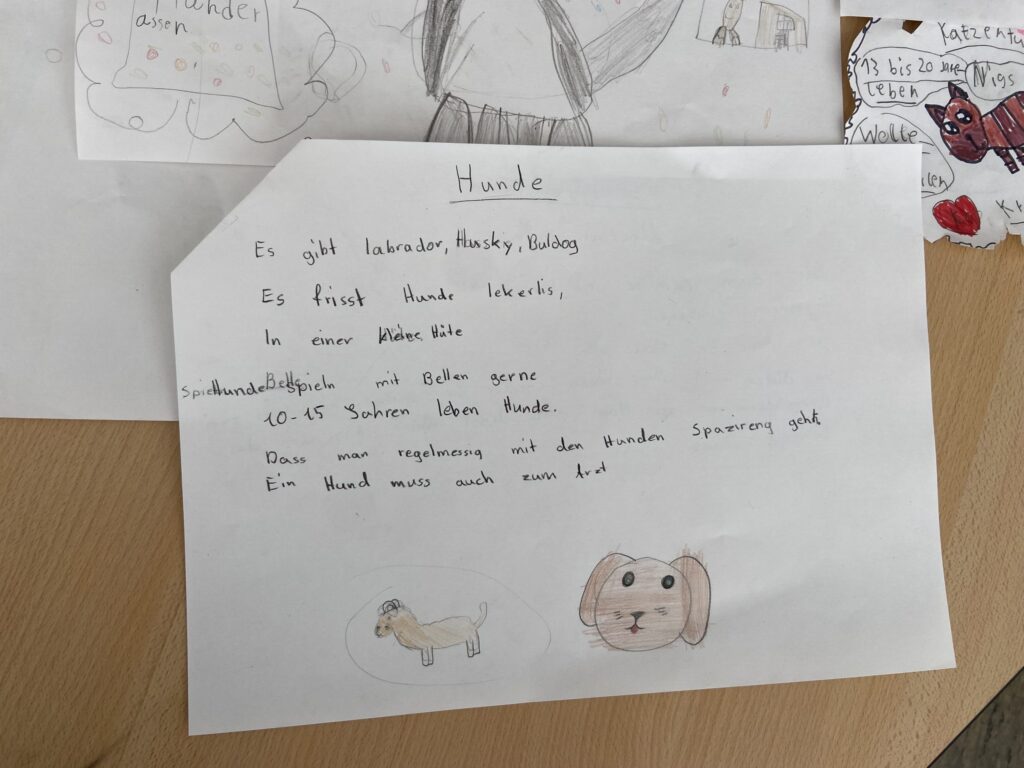 assen
Katzen
13 bis 20
leben
Wolle
Hunde
Es gibt labrador, Hausky, Buldog
Es frisst Hunde lekerlis,
In einer kleine Hüte
Hunde Spieln mit Bellen gerne
10-15 Jahren leben Hunde.
Dass man regelmessig mit den Hunden Spazireng geht
Ein Hund muss auch zum Arzt